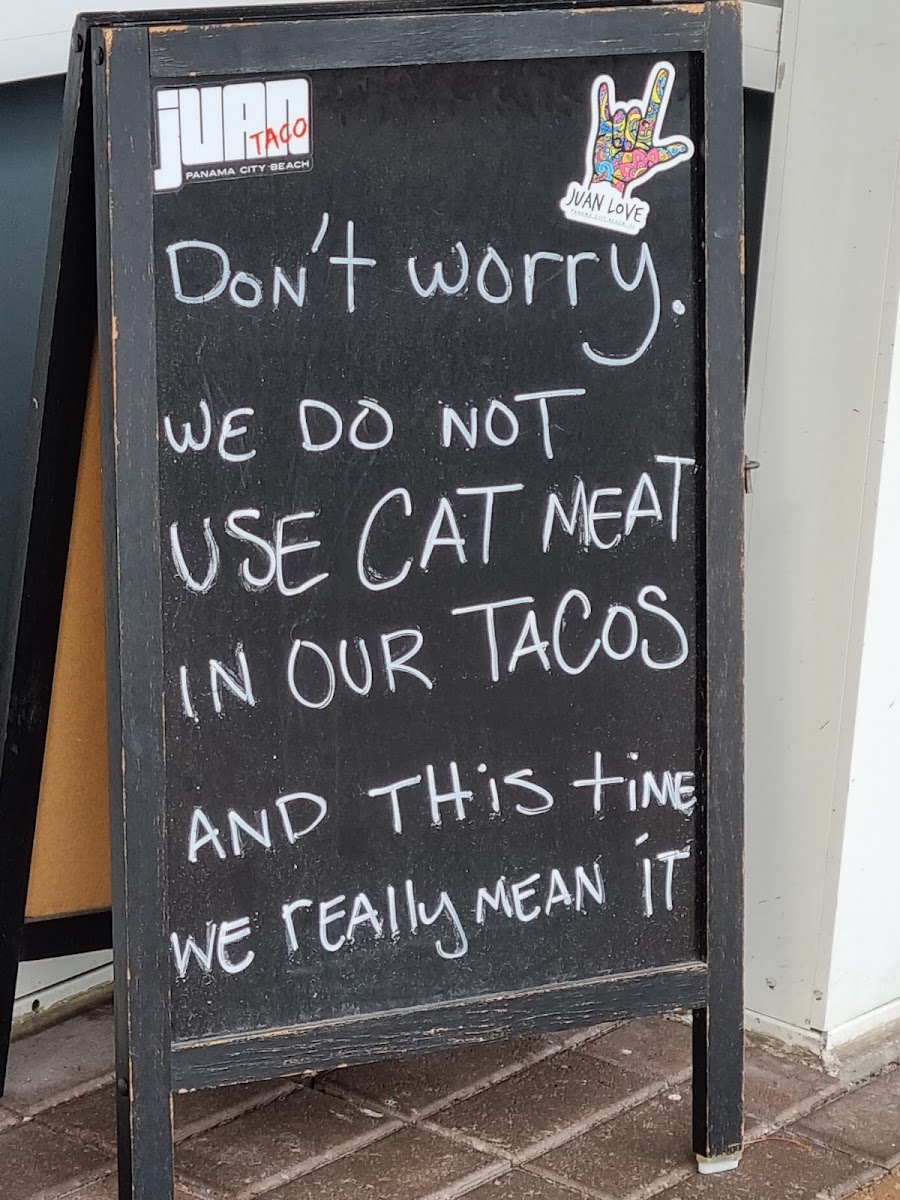 jUAN
TACO
PANAMA CITY BEACH
JUAN LOVE
DON't worry.
WE DO NOT
USE CAT MEAT
IN OUR TACOS
AND THiS tiME
WE rEAlly MEAN iT